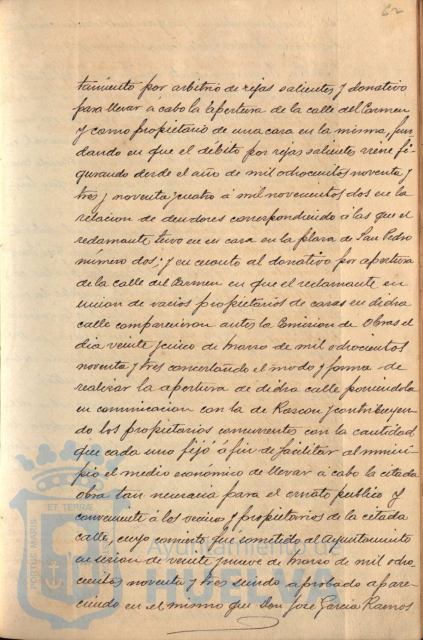 62
tamiento por arbitrio de rejas salientes y donativo
para llevar á cabo la apertura de la calle del Carmen
y como propietario de una casa en la misma, fun
dando en que el débito por rejas salientes viene fi
gurando desde el año de mil ochocientos noventa y
tres y noventa y cuatro á mil novecientos dos en la
relacion de deudores correspondiendo á las que el
reclamante tuvo en su casa en la plaza de San Pedro
número dos; y en cuanto al donativo por apertura
de la calle del Carmen en que el reclamante en
union de varios propietarios de casas en dicha
calle comparecieron antes la Comision de Obras el
dia veinte y cinco de Marzo de mil ochocientos
noventa y tres concertando el modo y forma de
realizar la apertura de dicha calle poniendola
en comunicacion con la de Rascon y contribuyen
do los propietarios concurrentes con la cantidad
que cada uno fijó á fin de facilitar al munici
pio el medio económico de llevar á cabo la citada
obra tan necesaria para el ornato publico y
conveniente á los vecinos y propietarios de la citada
calle, cuyo convenio que sometido al Ayuntamiento
en sesion de veinte y nueve de Marzo de mil ocho
cientos noventa y tres siendo aprobado apare
ciendo en el mismo que Don José Garcia Ramos
PORTUS MARIS ET TERRAE
Ayuntamiento de
HUELVA